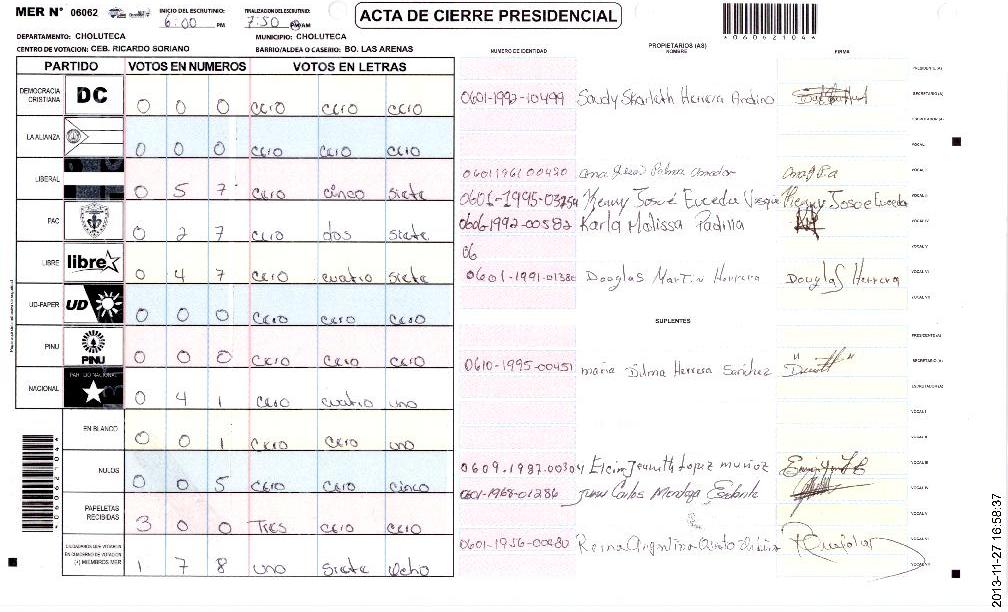 MER Nº 06062 INICIO DEL ESCRUTINIO: 6:00 PM FINALIZACION DEL ESCRUTINIO: 7:50 PM/AM
ACTA DE CIERRE PRESIDENCIAL
*06062104*
DEPARTAMENTO: CHOLUTECA MUNICIPIO: CHOLUTECA
CENTRO DE VOTACION: CEB. RICARDO SORIANO BARRIO/ALDEA O CASERIO: BO. LAS ARENAS
PARTIDO VOTOS EN NUMEROS VOTOS EN LETRAS
DEMOCRACIA CRISTIANA DC 0 0 0 cero cero cero
LA ALIANZA 0 0 0 cero cero cero
LIBERAL 0 5 7 cero cinco siete
PAC 0 2 7 cero dos siete
LIBRE libre 0 4 7 cero cuatro siete
UD-FAPER UD 0 0 0 cero cero cero
PINU PINU 0 0 0 cero cero cero
NACIONAL PARTIDO NACIONAL 0 4 1 cero cuatro uno
EN BLANCO 0 0 1 cero cero uno
NULOS 0 0 5 cero cero cinco
PAPELETAS RECIBIDAS 3 0 0 Tres cero cero
CIUDADANOS QUE VOTARON EN CUADERNO DE VOTACION (+) MIEMBROS MER 1 7 8 uno siete ocho
*06062104*
NUMERO DE IDENTIDAD PROPIETARIOS (AS) NOMBRE FIRMA
PRESIDENTE(A)
0601-1992-10499 Saudy Skarleth Herrera Andino SECRETARIO(A)
ESCRUTADOR(A)
VOCAL I
0601196100420 Ana Palma Amador VOCAL II
0601-1995-03254 Kenny Josué Euceda Kenny Josoe Euceda VOCAL III
0606-1992-00582 Karla Malissa Padilla VOCAL IV
06 VOCAL V
0601-1991-01386 Douglas Martin Herrera Douglas Herrera VOCAL VI
VOCAL VII
SUPLENTES
PRESIDENTE(A)
0610-1995-00451 maria Dilma Herrera Sanchez SECRETARIO(A)
ESCRUTADOR(A)
VOCAL I
VOCAL II
0609-1987-00304 Elcin Jeanneth Lopez muñoz VOCAL III
0601-1968-01286 Juan Carlos VOCAL IV
VOCAL V
0601-1956-00480 Reina Argentina VOCAL VI
VOCAL VII
2013-11-27 16:58:37